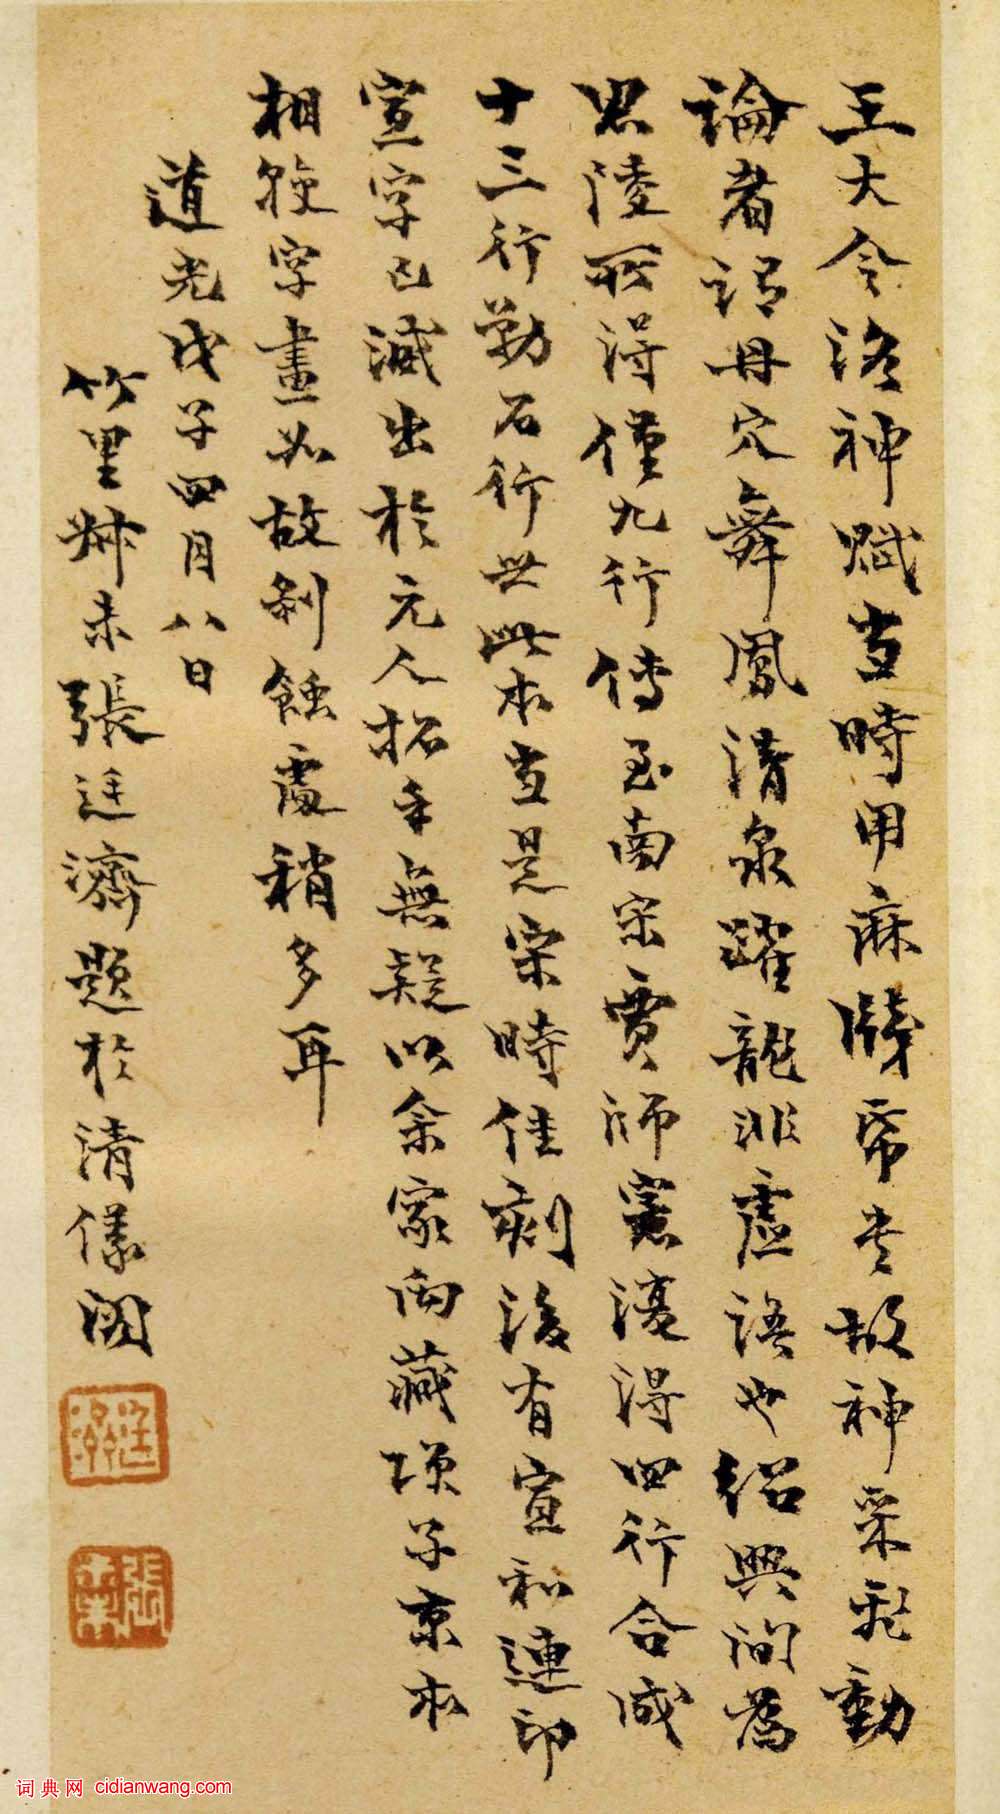 王大令洛神賦當時用麻牋帋書故神采飛動
論者謂丹穴舞鳳清泉躍龍非虛語也紹興間為
思陵所得僅九行傳至南宋賈師憲復得四行合成
十三行勒石行世此本當是宋時佳刻後有宣和連印
宣字已減出於元人拓手無疑以余家両藏項子京本
相較字畫如故剝蝕處稍多耳
道光戊子四月八日
竹里叔未張廷濟題於清儀閣
廷濟
張叔未
词典网 cidianwang.com